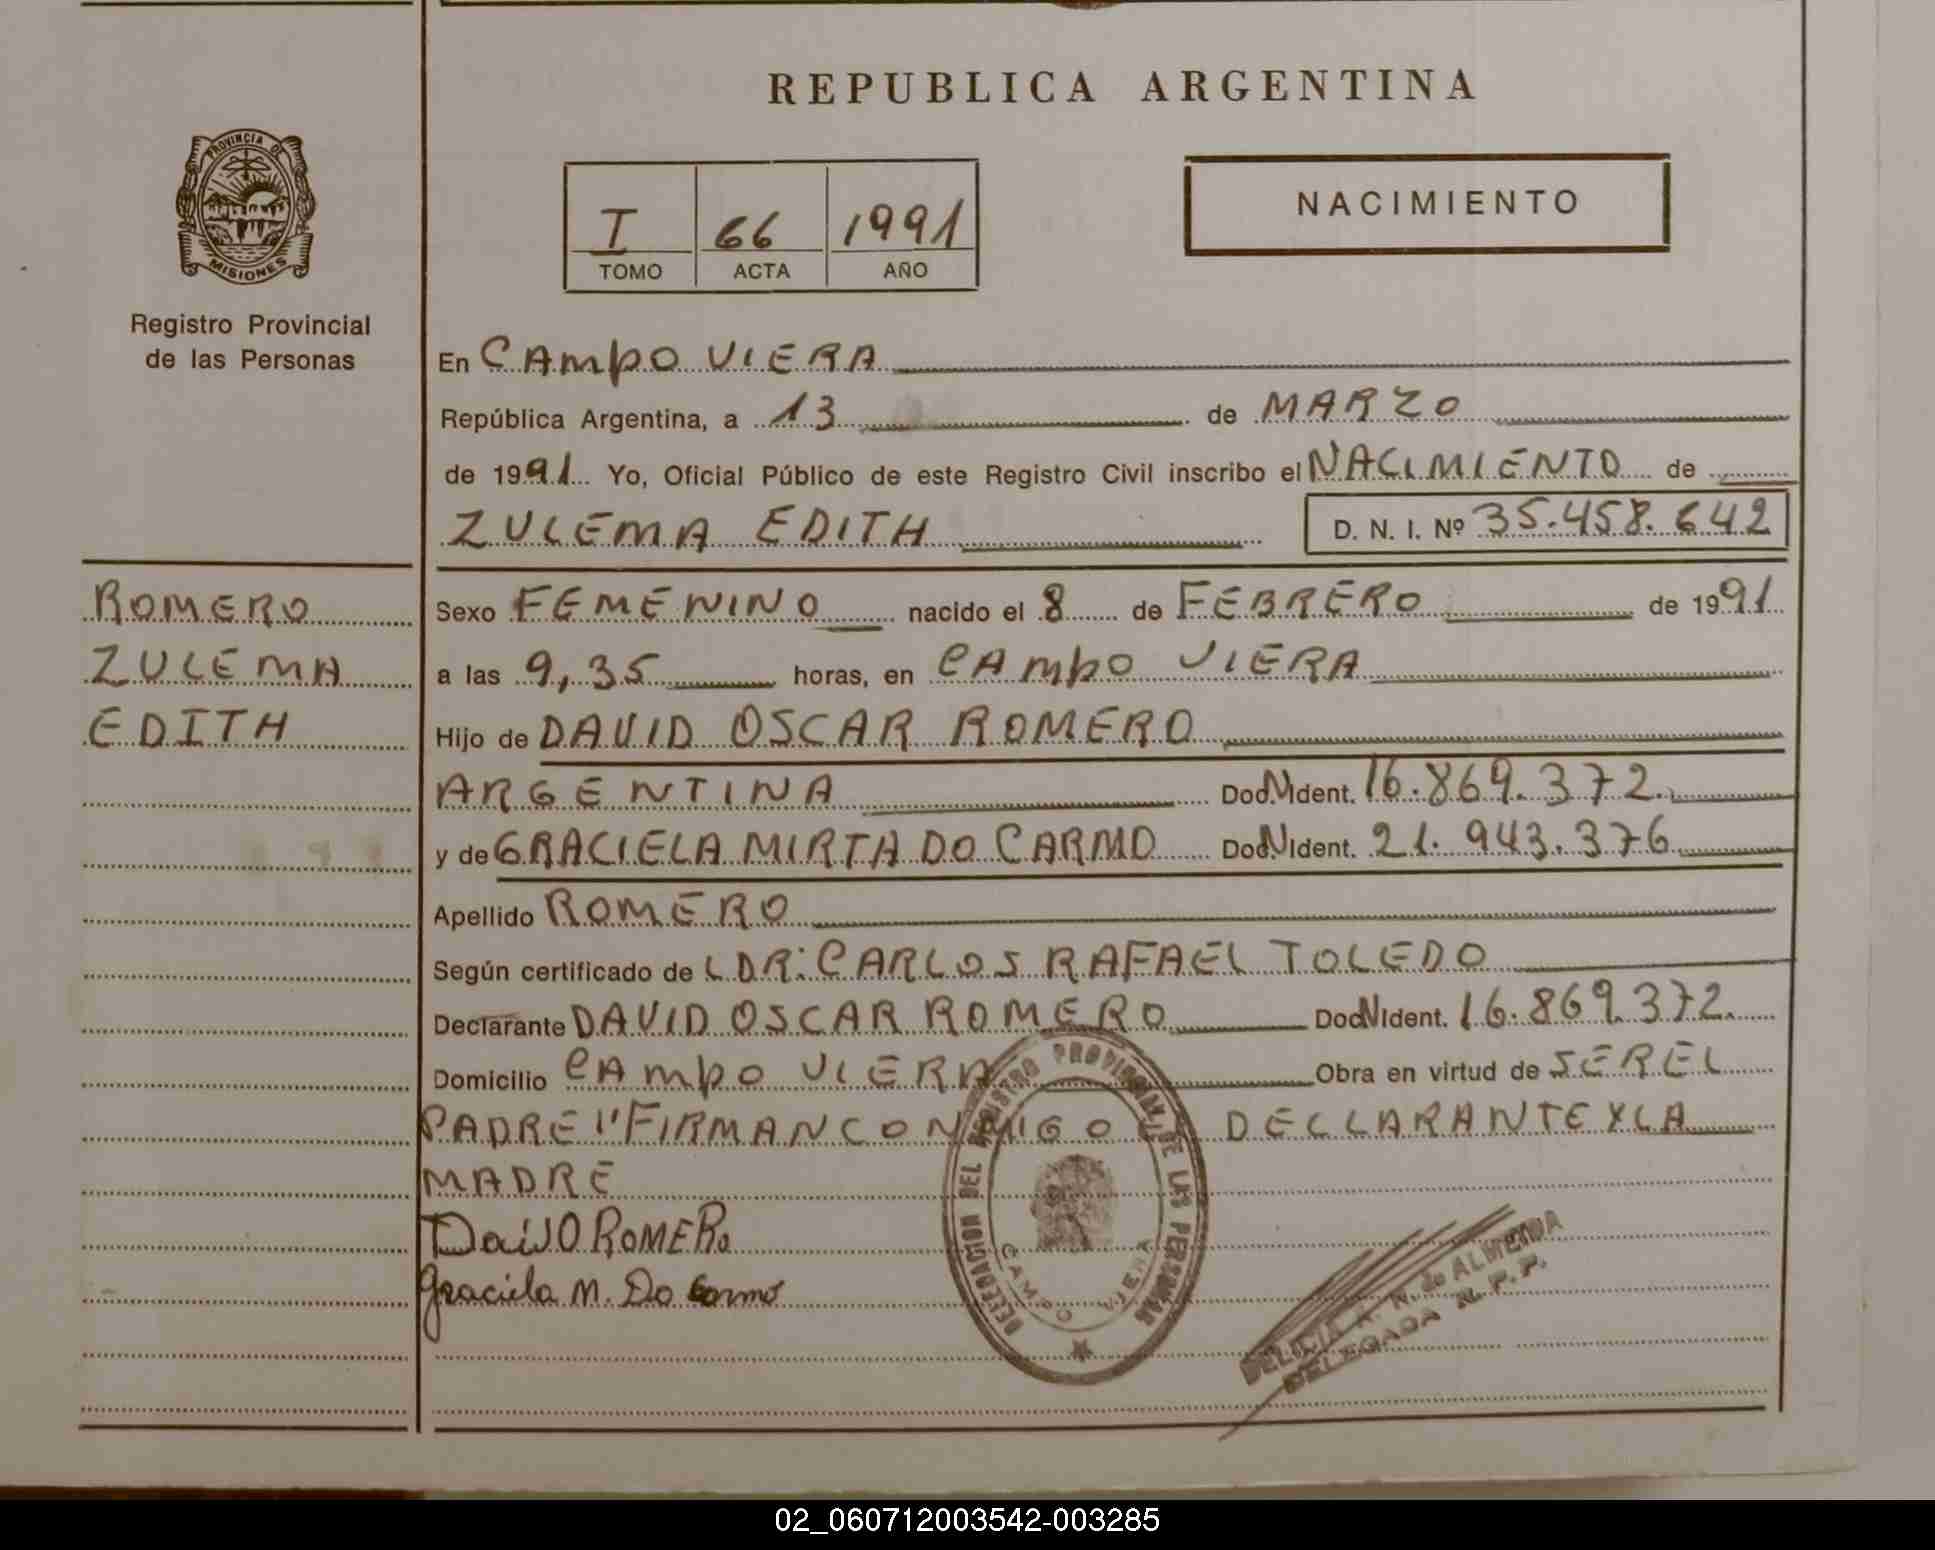 REPUBLICA ARGENTINA
PROVINCIA DE
MISIONES
Registro Provincial
de las Personas
I 66 1991
TOMO ACTA AÑO
NACIMIENTO
En CAMPO VIERA
República Argentina, a 13 de MARZO
de 1991 Yo, Oficial Público de este Registro Civil inscribo el NACIMIENTO de
ZULEMA EDITH D. N. I. Nº 35.458.642
ROMERO
ZULEMA
EDITH
Sexo FEMENINO nacido el 8 de FEBRERO de 1991
a las 9,35 horas, en CAMPO VIERA
Hijo de DAVID OSCAR ROMERO
ARGENTINA Doc.N.Ident. 16.869.372.
y de GRACIELA MIRTA DO CARMO Doc.N.Ident. 21.943.376
Apellido ROMERO
Según certificado de LDR: CARLOS RAFAEL TOLEDO
Declarante DAVID OSCAR ROMERO Doc.N.Ident. 16.869.372.
Domicilio CAMPO VIERA Obra en virtud de SER EL
PADRE I" FIRMAN CONMIGO EL DECLARANTE Y LA
MADRE
David O ROMERO
Graciela M. Do Carmo
DELEGACION DEL REGISTRO PROVINCIAL DE LAS PERSONAS
CAMPO VIERA
DELICIA A. N. de ALMEIDA
DELEGADA R. P. P.
02_060712003542-003285